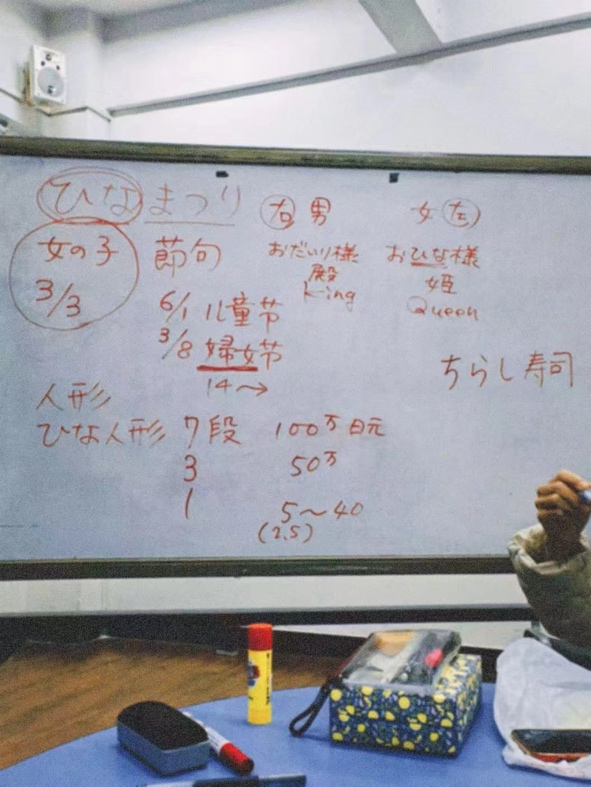 ひなまつり
右 男
女 左
女の子
節句
おだいり様
おひな様
殿
姫
3/3
King
Queen
6/1 儿童节
3/8 婦女节
14→
ちらし寿司
人形
ひな人形 7段 100万日元
3 50万
1 5〜40
(2.5)